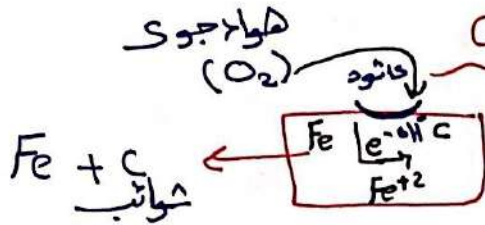 هواء جوى
(O₂)
كاثود
Fe e⁻ C
Fe⁺²
Fe + C
شوائب